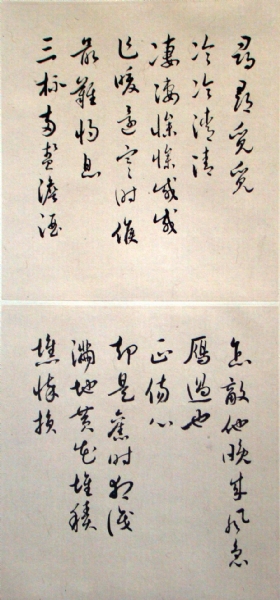 尋尋覓覓
冷冷清清
凄凄慘慘戚戚
乍暖還寒時候
最難將息
三杯兩盞澹酒
怎敵他晚來風急
鴈過也
正傷心
却是舊時相識
滿地黃花堆積
憔悴損